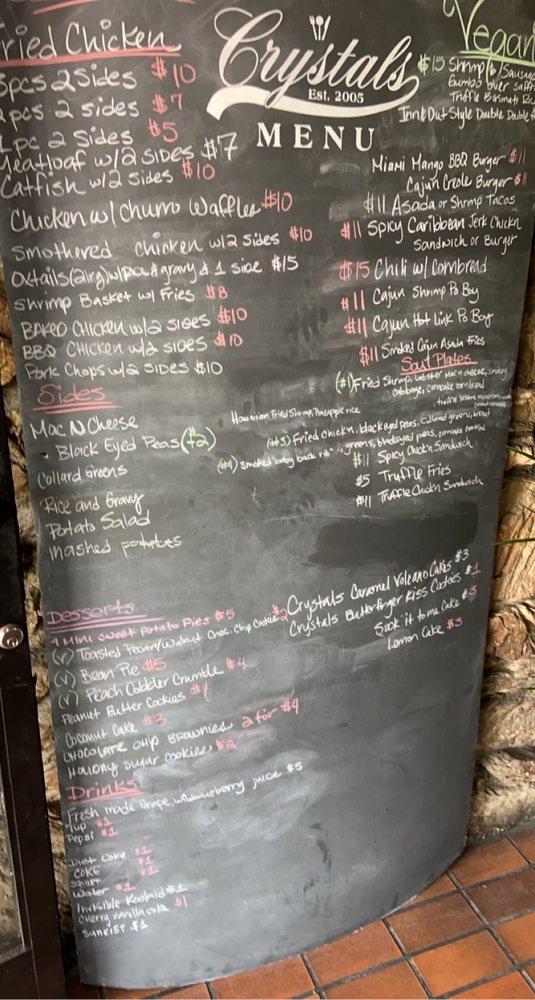 ried Chicken
3pcs 2 Sides $10
pcs 2 sides $7
1pc 2 Sides $5
Meatloaf w/2 SIDES $7
Catfish w/2 sides $10
Chicken w/ Churro Waffles $10
Smothered Chicken w/2 Sides $10
Oxtails (2lrg) w/ gravy & 1 side $15
Shrimp Basket w/ Fries $8
BAKED CHICKEN w/2 SIDES $10
BBQ CHICKEN w/2 SIDES $10
Pork Chops w/2 SIDES $10
Sides
Mac N Cheese
Black Eyed Peas ($2)
Collard Greens
Rice and Gravy
Potato Salad
Mashed Potatoes
Desserts
1 Mini Sweet Potato Pies $5
(V) Toasted Pecan/Walnut Choc. Chip Cookie $2
(V) Bean Pie $5
(V) Peach Cobbler Crumble $4
Peanut Butter Cookies $1
Coconut Cake $3
CHOCOLATE CHIP BROWNIES 2 for $4
Sugar Cookies $2
Drinks
Fresh made Grape, juice $5
7up $1
Pepsi $1
Diet Coke $1
COKE $1
Sprite $1
Water $1
Invisible Koolaid $1
Cherry Vanilla coke $1
Sunkist $1
Crystals
Est. 2005
MENU
Vegan
$15 Shrimp /Sausage
Gumbo Over Saffr
Truffle Basmati Ric
Inn & Out Style Double Double
Miami Mango BBQ Burger $11
Cajun Creole Burger $11
$11 Asada or Shrimp Tacos
$11 Spicy Caribbean Jerk Chickn
Sandwich or Burger
$15 Chili w/ Cornbread
$11 Cajun Shrimp Po Boy
$11 Cajun Hot Link Po Boy
$11 Smoked Cajun Asada Fries
Soul Plates
(#1) Fried Shrimp, lobster Mac n cheese, smokey
cabbage, cornbread
Hawaiian Fried Shrimp Pineapple rice
(#3) Fried Chickn, black eyed peas, collard greens,
(#4) Smoked "baby back rib" greens, blackeyed peas,
$11 Spicy Chickn Sandwich
$5 Truffle Fries
$11 Truffle Chickn Sandwich
Crystals Caramel Volcano Cakes $3
Crystals Butterfinger Kiss Cookies $1
Sock it to me Cake $5
Lemon Cake $3